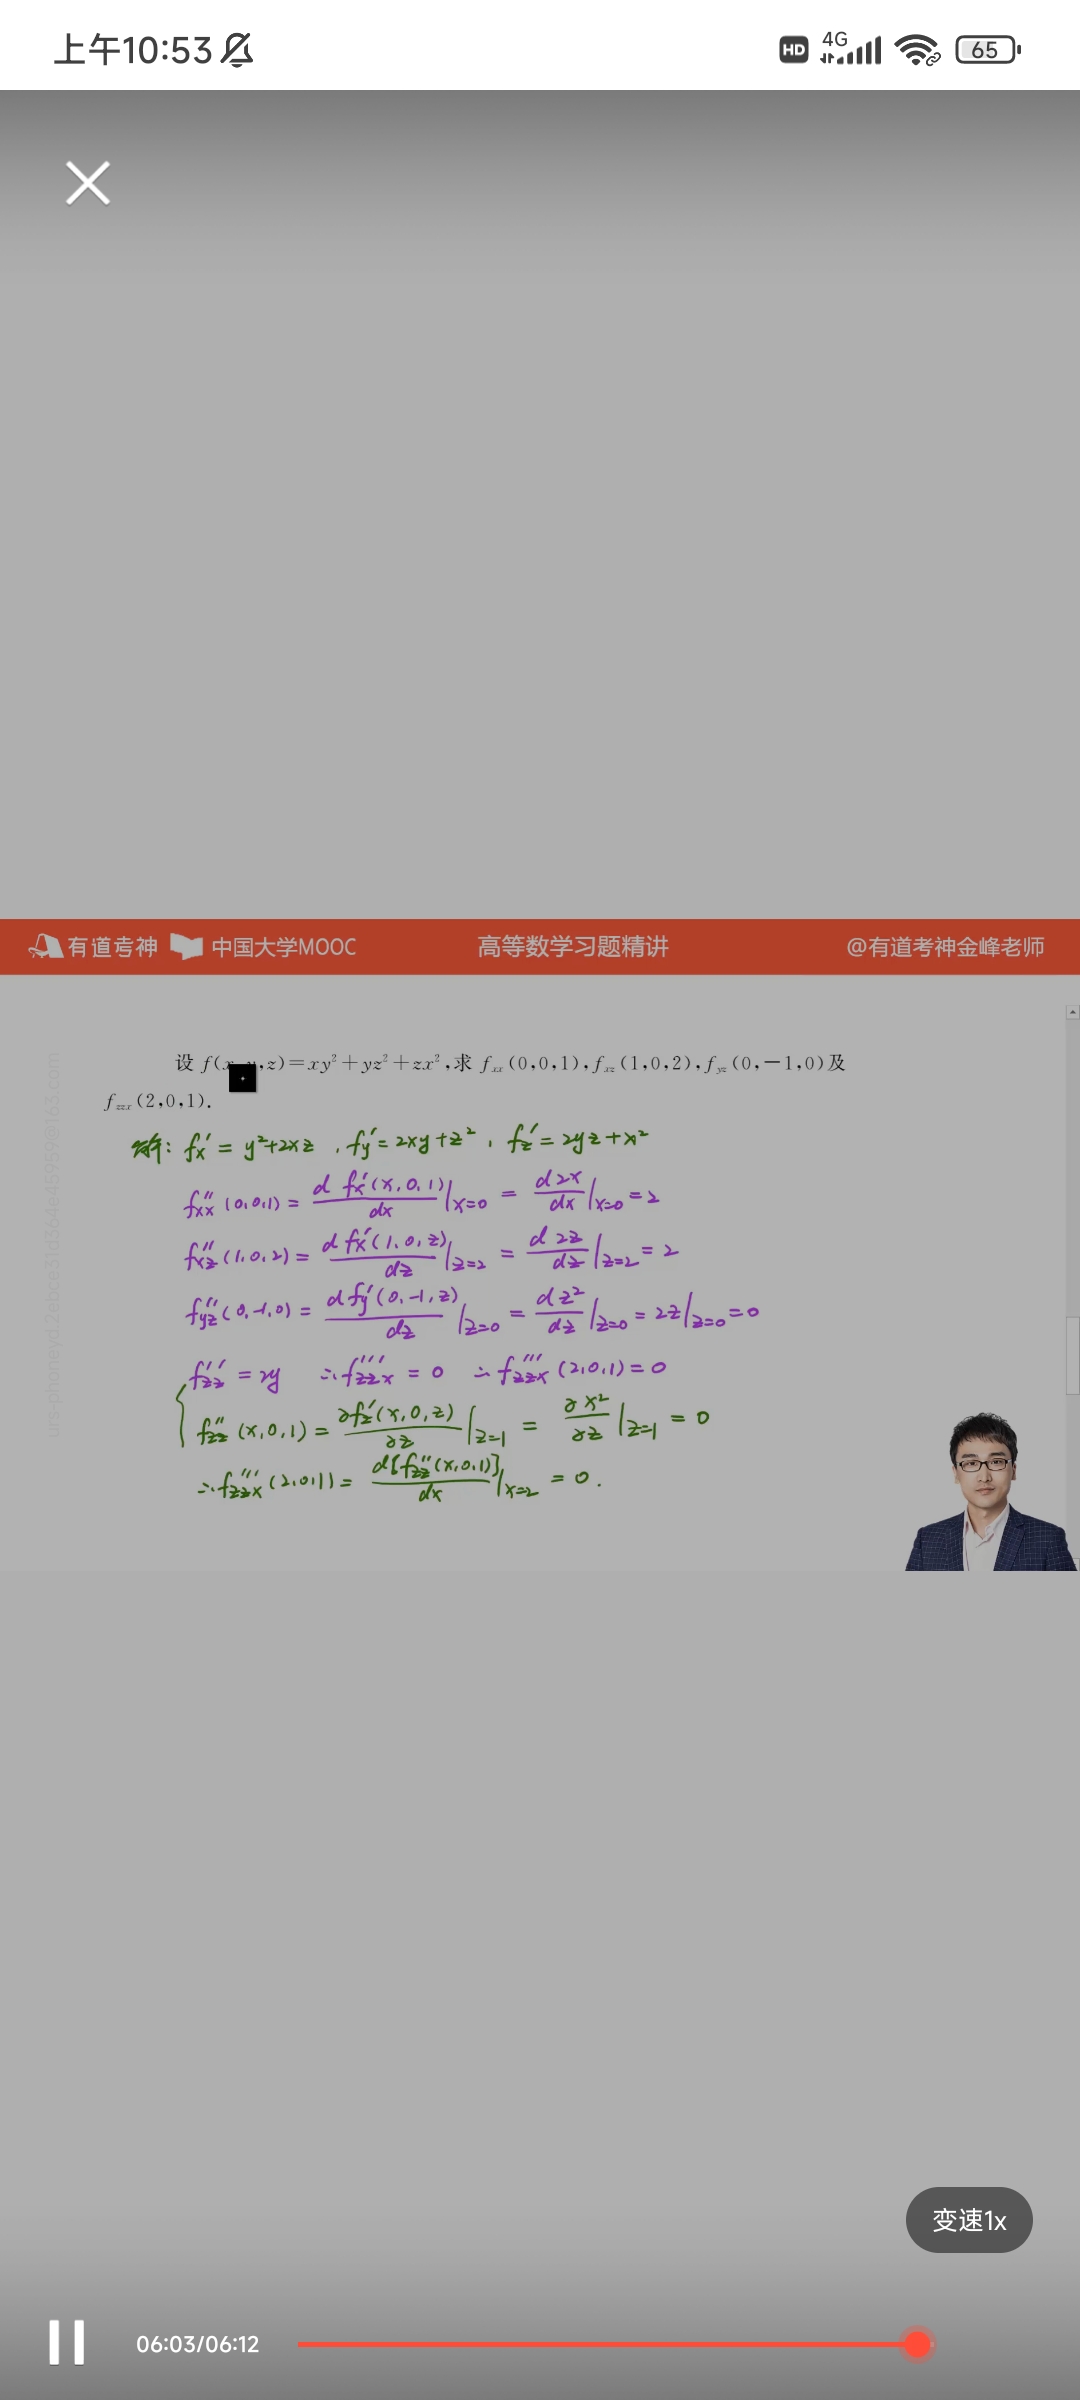 上午10:53
HD 4G 65
有道考神 中国大学MOOC 高等数学习题精讲 @有道考神金峰老师
设 f(x,y,z)=xy²+yz²+zx²,求 fₓₓ(0,0,1),f_xz(1,0,2),f_yz(0,-1,0)及
f_zzx(2,0,1).
解: fx′ = y²+2xz , fy′ = 2xy+z² , fz′ = 2yz+x²
fxx″(0,0,1) = d fx′(x,0,1)/dx |x=0 = d 2x/dx |x=0 = 2
fxz″(1,0,2) = d fx′(1,0,z)/dz |z=2 = d 2z/dz |z=2 = 2
fyz″(0,-1,0) = d fy′(0,-1,z)/dz |z=0 = d z²/dz |z=0 = 2z|z=0 = 0
fzz″ = 2y ∴ fzzx‴ = 0 ∴ fzzx‴(2,0,1) = 0
fzz″(x,0,1) = ∂fz′(x,0,z)/∂z |z=1 = ∂x²/∂z |z=1 = 0
∴ fzzx‴(2,0,1) = d[fzz″(x,0,1)]/dx |x=2 = 0.
变速1x
06:03/06:12